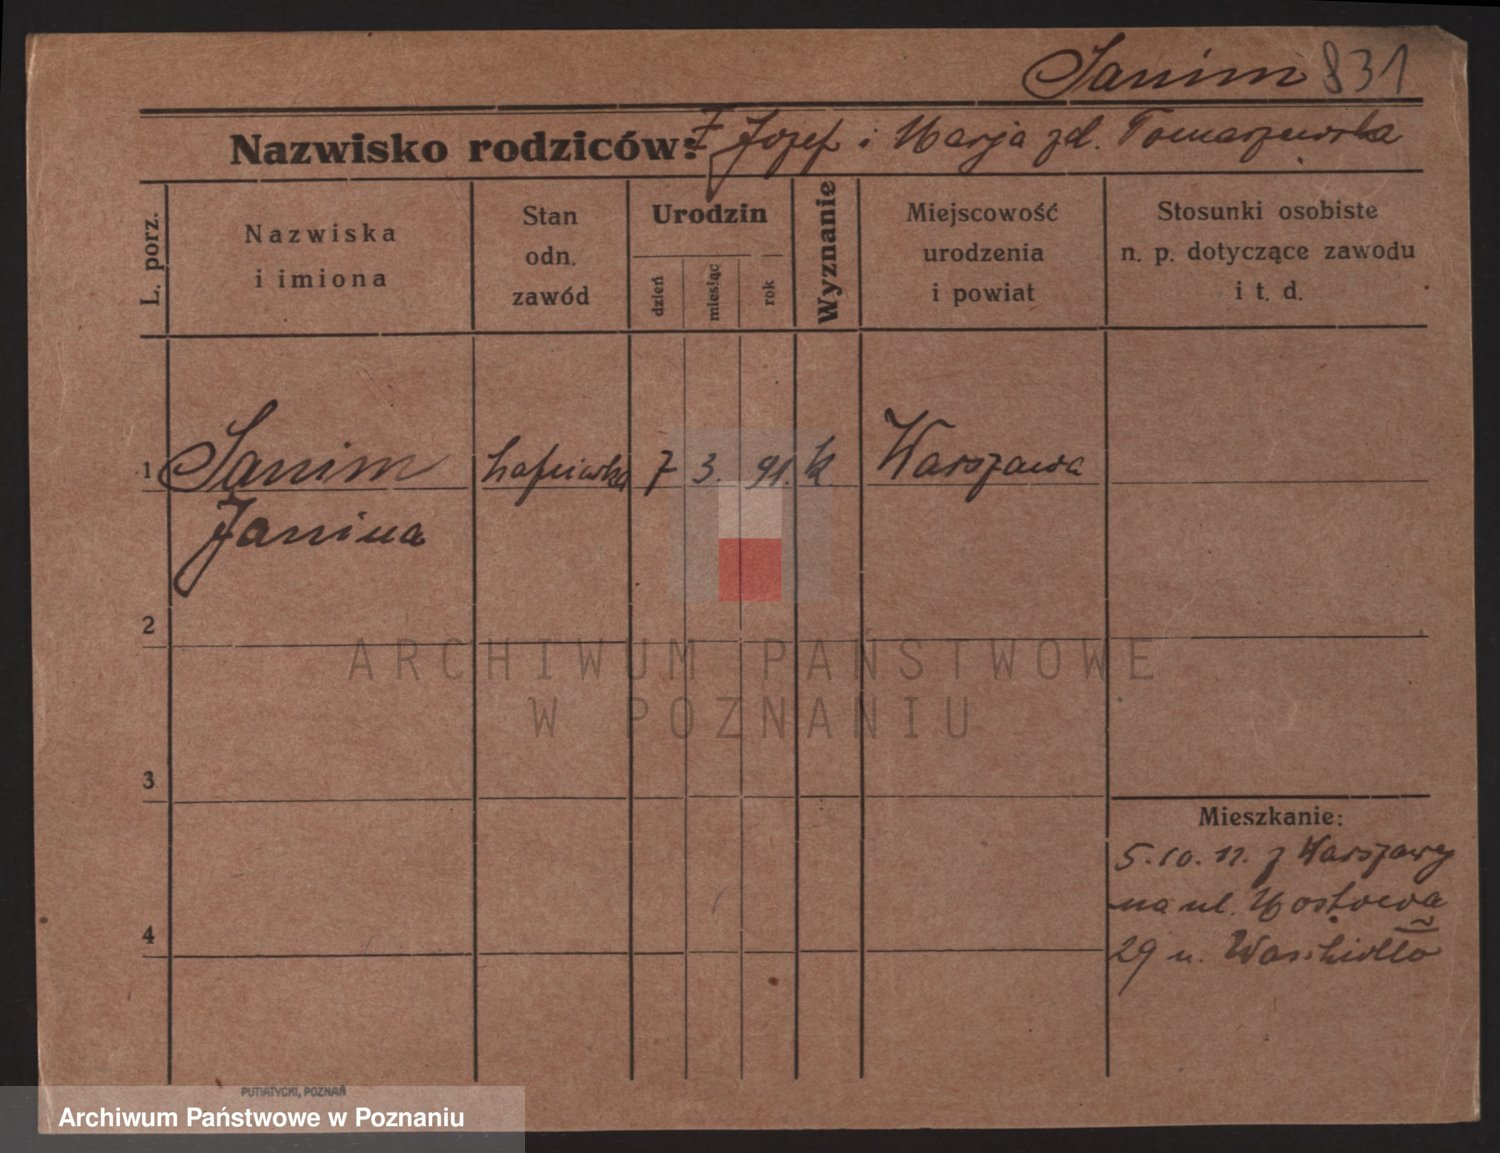 Sanim 831
Nazwisko rodziców: Józef i Marja zd. Tomaszewska
L. porz.
Nazwiska
i imiona
Stan
odn.
zawód
Urodzin
dzień
miesiąc
rok
Wyznanie
Miejscowość
urodzenia
i powiat
Stosunki osobiste
n. p. dotyczące zawodu
i t. d.
1 Sanim hafciarka 7 3. 91. k. Warszawa
Janina
2
3
4
Mieszkanie:
5.10. z Warszawy
na ul. Mostowa
29 u.
ARCHIWUM PAŃSTWOWE
W POZNANIU
PUTIATYCKI, POZNAŃ
Archiwum Państwowe w Poznaniu